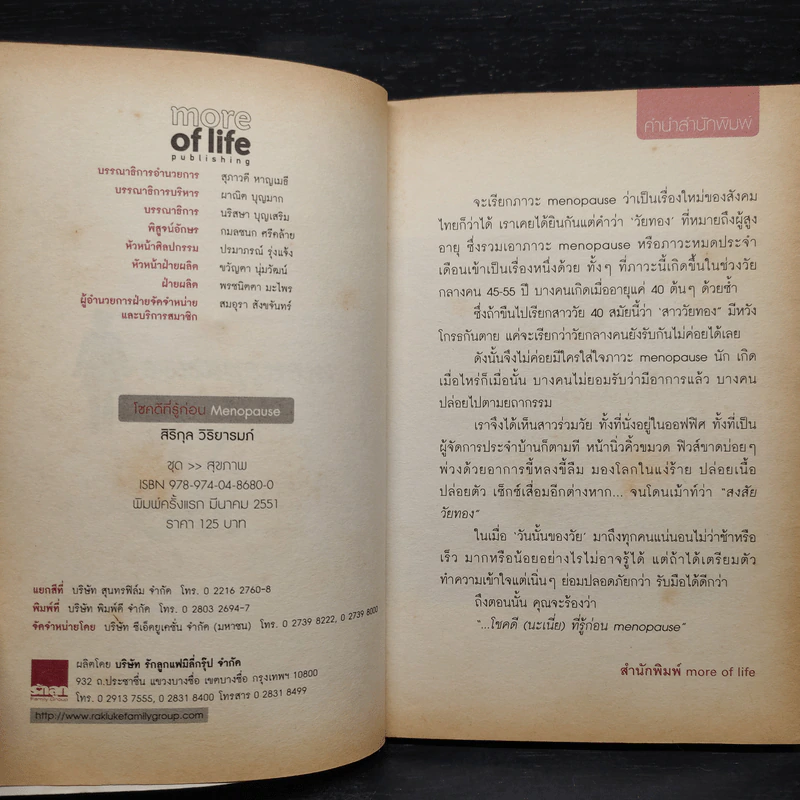 more
of life
publishing
บรรณาธิการอำนวยการ สุภาวดี หาญเมธี
บรรณาธิการบริหาร ผาณิต บุญมาก
บรรณาธิการ นริสษา บุญเสริม
พิสูจน์อักษร กมลชนก ศรีคล้าย
หัวหน้าศิลปกรรม ปรมาภรณ์ รุ่งแจ้ง
หัวหน้าฝ่ายผลิต ขวัญตา นุ่มวัฒน์
ฝ่ายผลิต พรชนิตตา มะไพร
ผู้อำนวยการฝ่ายจัดจำหน่าย สมอุรา สังขจันทร์
และบริการสมาชิก
โชคดีที่รู้ก่อน Menopause
สิริกุล วิริยารมภ์
ชุด >> สุขภาพ
ISBN 978-974-04-8680-0
พิมพ์ครั้งแรก มีนาคม 2551
ราคา 125 บาท
แยกสีที่ บริษัท สุนทรฟิล์ม จำกัด โทร. 0 2216 2760-8
พิมพ์ที่ บริษัท พิมพ์ดี จำกัด โทร. 0 2803 2694-7
จัดจำหน่ายโดย บริษัท ซีเอ็ดยูเคชั่น จำกัด (มหาชน) โทร. 0 2739 8222, 0 2739 8000
ผลิตโดย บริษัท รักลูกแฟมิลี่กรุ๊ป จำกัด
932 ถ.ประชาชื่น แขวงบางซื่อ เขตบางซื่อ กรุงเทพฯ 10800
รักลูก
โทร. 0 2913 7555, 0 2831 8400 โทรสาร 0 2831 8499
http://www.raklukefamilygroup.com
คำนำสำนักพิมพ์
จะเรียกภาวะ menopause ว่าเป็นเรื่องใหม่ของสังคม
ไทยก็ว่าได้ เราเคยได้ยินกันแต่คำว่า 'วัยทอง' ที่หมายถึงผู้สูง
อายุ ซึ่งรวมเอาภาวะ menopause หรือภาวะหมดประจำ
เดือนเข้าเป็นเรื่องหนึ่งด้วย ทั้งๆ ที่ภาวะนี้เกิดขึ้นในช่วงวัย
กลางคน 45-55 ปี บางคนเกิดเมื่ออายุแค่ 40 ต้นๆ ด้วยซ้ำ
ซึ่งถ้าขืนไปเรียกสาววัย 40 สมัยนี้ว่า 'สาววัยทอง" มีหวัง
โกรธกันตาย แค่จะเรียกว่าวัยกลางคนยังรับกันไม่ค่อยได้เลย
ดังนั้นจึงไม่ค่อยมีใครใส่ใจภาวะ menopause นัก เกิด
เมื่อไหร่ก็เมื่อนั้น บางคนไม่ยอมรับว่ามีอาการแล้ว บางคน
ปล่อยไปตามยถากรรม
เราจึงได้เห็นสาวร่วมวัย ทั้งที่นั่งอยู่ในออฟฟิศ ทั้งที่เป็น
ผู้จัดการประจำบ้านก็ตามที หน้านิ่วคิ้วขมวด ฟิวส์ขาดบ่อยๆ
พ่วงด้วยอาการขี้หลงขี้ลืม มองโลกในแง่ร้าย ปล่อยเนื้อ
ปล่อยตัว เซ็กซ์เสื่อมอีกต่างหาก... จนโดนเม้าท์ว่า "สงสัย
วัยทอง"
ในเมื่อ 'วันนั้นของวัย' มาถึงทุกคนแน่นอนไม่ว่าช้าหรือ
เร็ว มากหรือน้อยอย่างไรไม่อาจรู้ได้ แต่ถ้าได้เตรียมตัว
ทำความเข้าใจแต่เนิ่นๆ ย่อมปลอดภัยกว่า รับมือได้ดีกว่า
ถึงตอนนั้น คุณจะร้องว่า
"...โชคดี (นะเนี่ย) ที่รู้ก่อน menopause"
สำนักพิมพ์ more of life